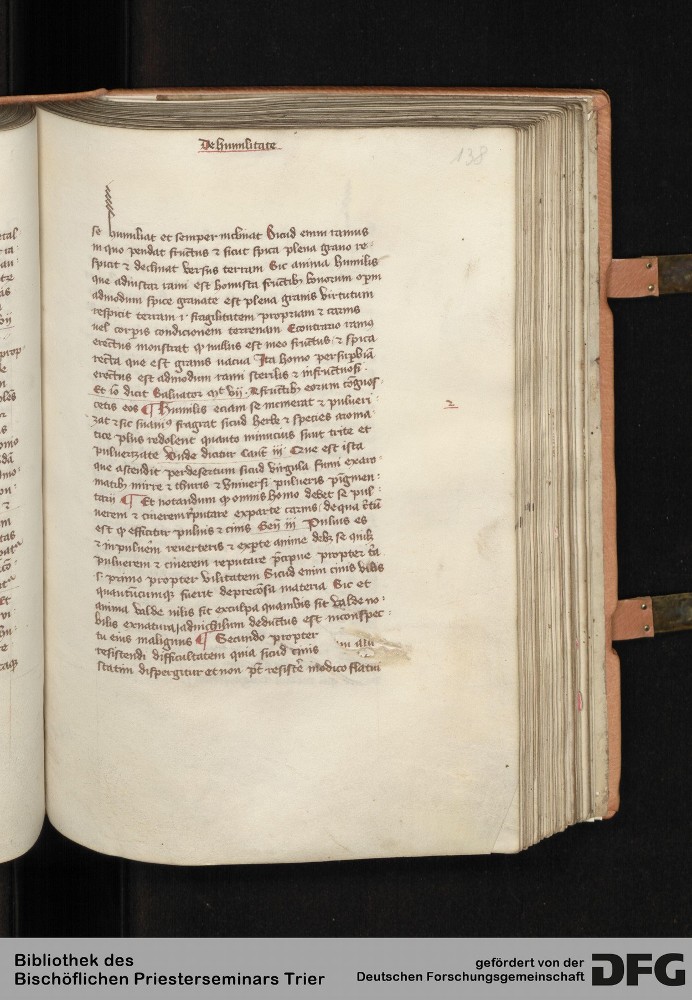 De humilitate
138
se humiliat et semper inclinat Sicud enim ramus
in quo pendat fructus et sicut spica plena grano re-
spicit et declinat versus terram Sic anima humilis
que ad instar rami est honusta fructibꝫ bonorum opm
admodum spice granate est plena granis virtutum
respicit terram .i. fragilitatem propriam et carnis
vel corpis condicionem terrenam Econtrario ramꝰ
erectus monstrat ꝙ nullus est in eo fructus / et spica
recta que est granis vacua Ita homo per supbiā
erectus est admodum rami sterilis et infructuosi .
Et iō dicit Salvator mt vii . A fructibꝫ eorum cōgnos-
cetis eos ¶ Humilis eciam se incinerat et pulueri-
zat et sic suaviꝰ fragrat sicud herbe et species aroma-
tice plus redolent quanto minucius sunt trite et
puluerizate Unde dicitur Cant iij Que est ista
que ascendit per desertum sicud virgula fumi ex aro-
matibꝫ mirre et thuris et universi pulueris pigmen-
tarii ¶ Et notandum ꝙ omnis homo debet se pul-
uerem et cinerem reputare ex parte carnis / de qua
est ꝙ efficitur pulvis et cinis Gen iij Pulvis es
et in pulverē reverteris et ex pte anime debꝫ se
puluerem et cinerem reputare pͥcipue propter
primo propter vilitatem Sicud enim cinis vilis
quantūcumqꝫ fuerit de preciosa materia Sic et
anima valde vilis fit ex culpa quamvis sit valde no-
bilis ex natura / ad nichilum deductus est in conspec-
tu eius malignus ¶ Secundo propter
resistendi difficultatem quia sicud cinis
statim dispergitur et non pt resistē modico flatui
Bibliothek des
Bischöflichen Priesterseminars Trier
gefördert von der
Deutschen Forschungsgemeinschaft
DFG